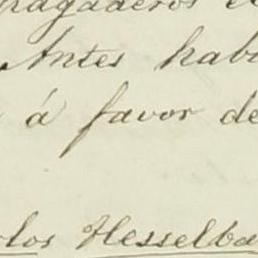 pagaderos e
Antes habi
á favor de
los Hesselba